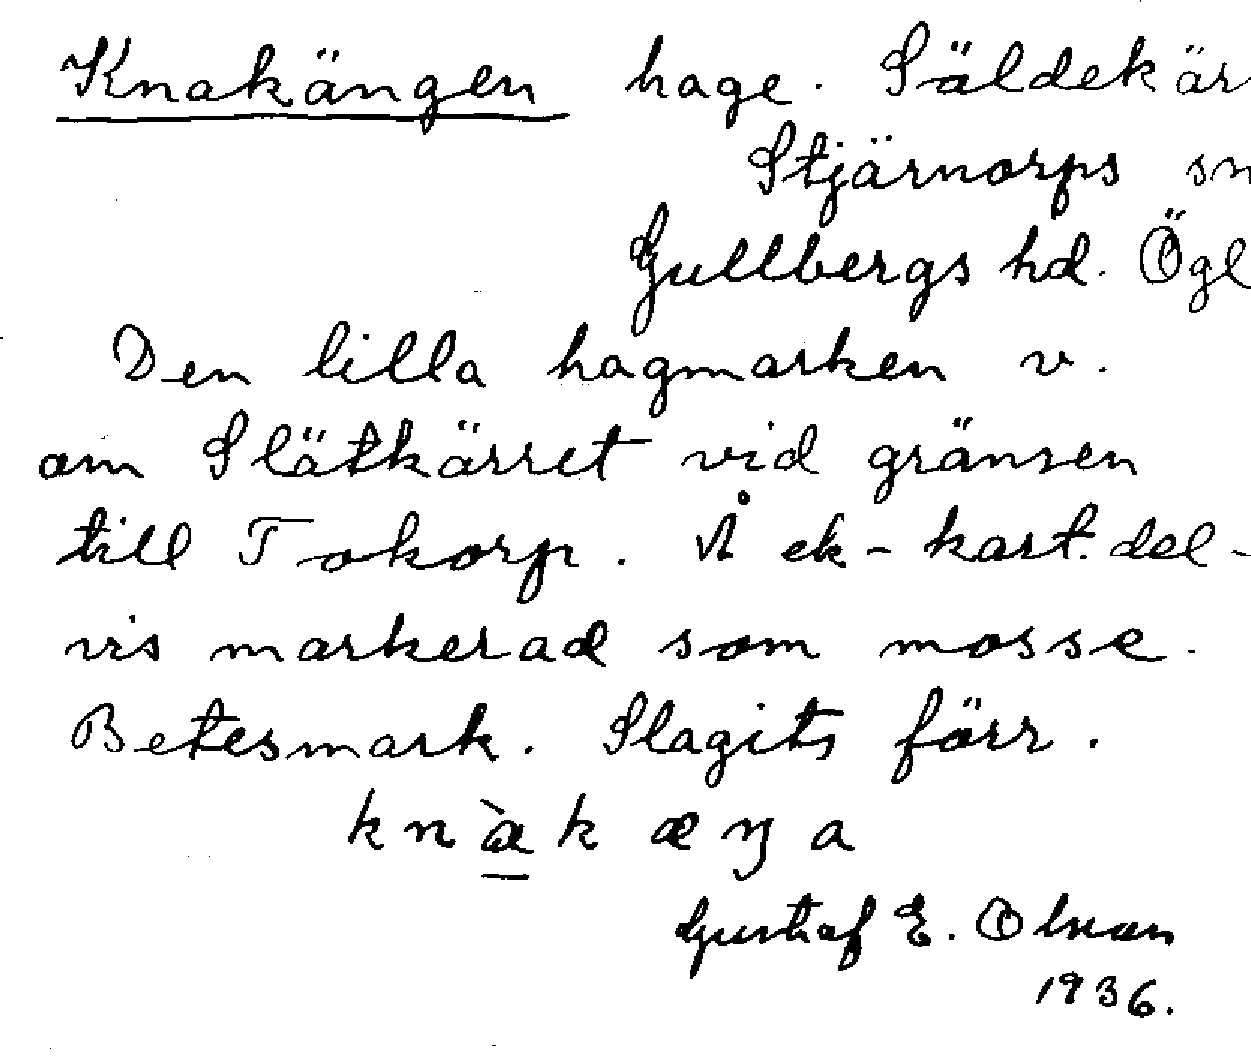 Knakängen hage. Säldekär
Stjärnorps sn
Gullbergs hd. Ögl
Den lilla hagmarken v.
om Slätkärret vid gränsen
till Tokorp. Å ek-kart. del-
vis markerad som mosse.
Betesmark. Slagits förr.
knàkæŋa
Gustaf E. Olsson
1936.